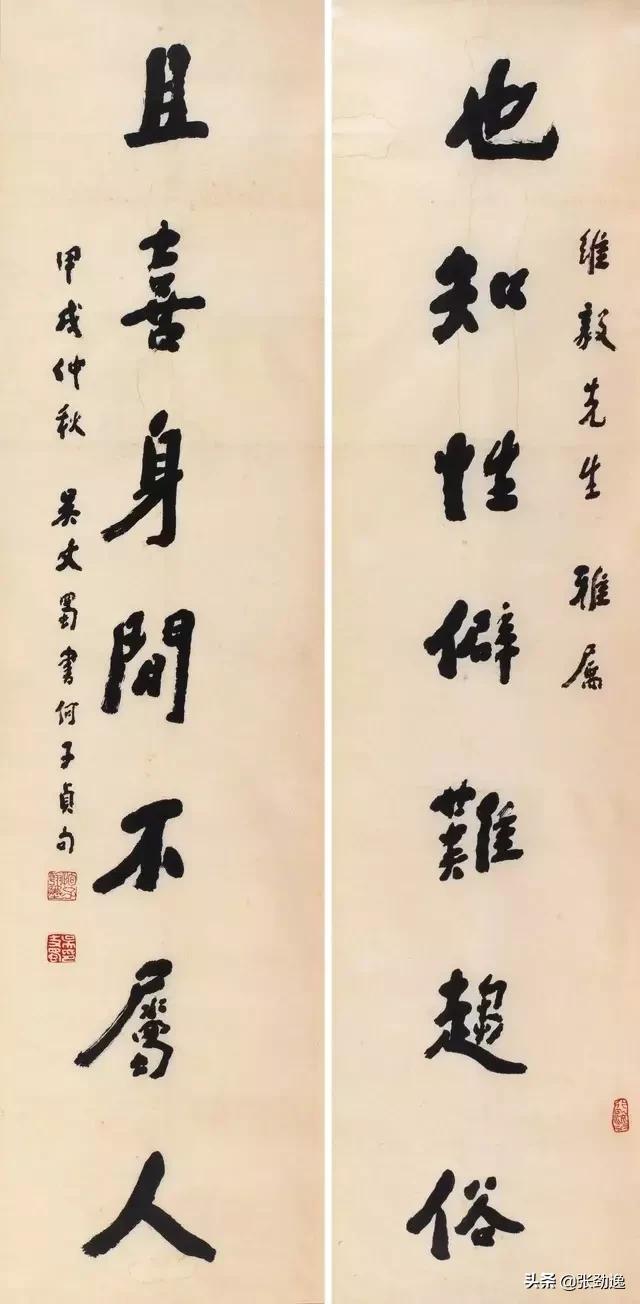 維毅先生 雅屬
也知性僻難趨俗
且喜身閒不屬人
甲戌仲秋 吳丈蜀書何子貞句
头条 @张劲逸